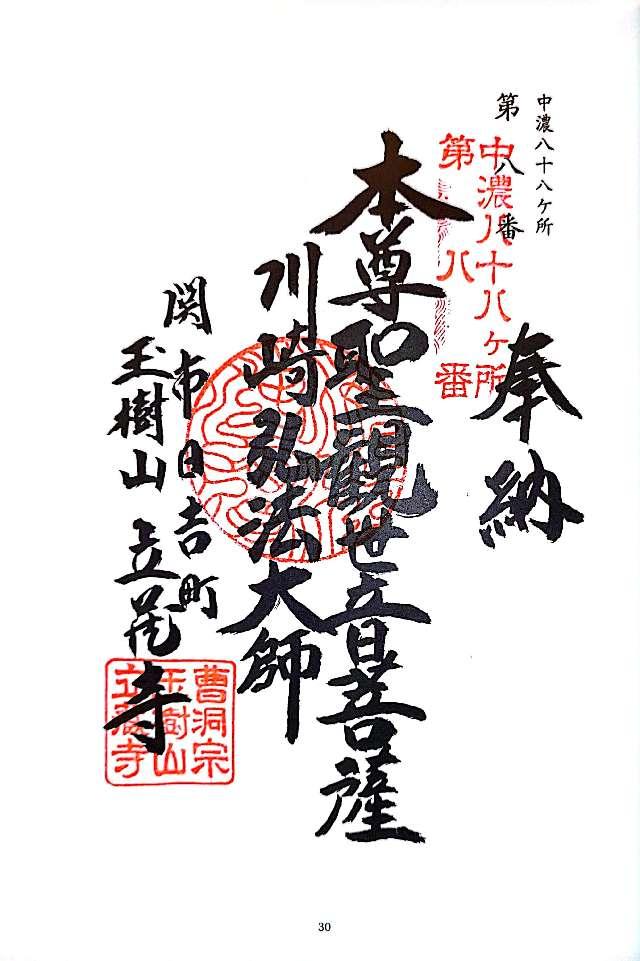 中濃八十八ケ所
第八番
中濃八十八ヶ所
第八番
奉納
本尊聖観世音菩薩
川崎弘法大師
関市日吉町
玉樹山立蔵寺
曹洞宗
玉樹山
立蔵寺
30